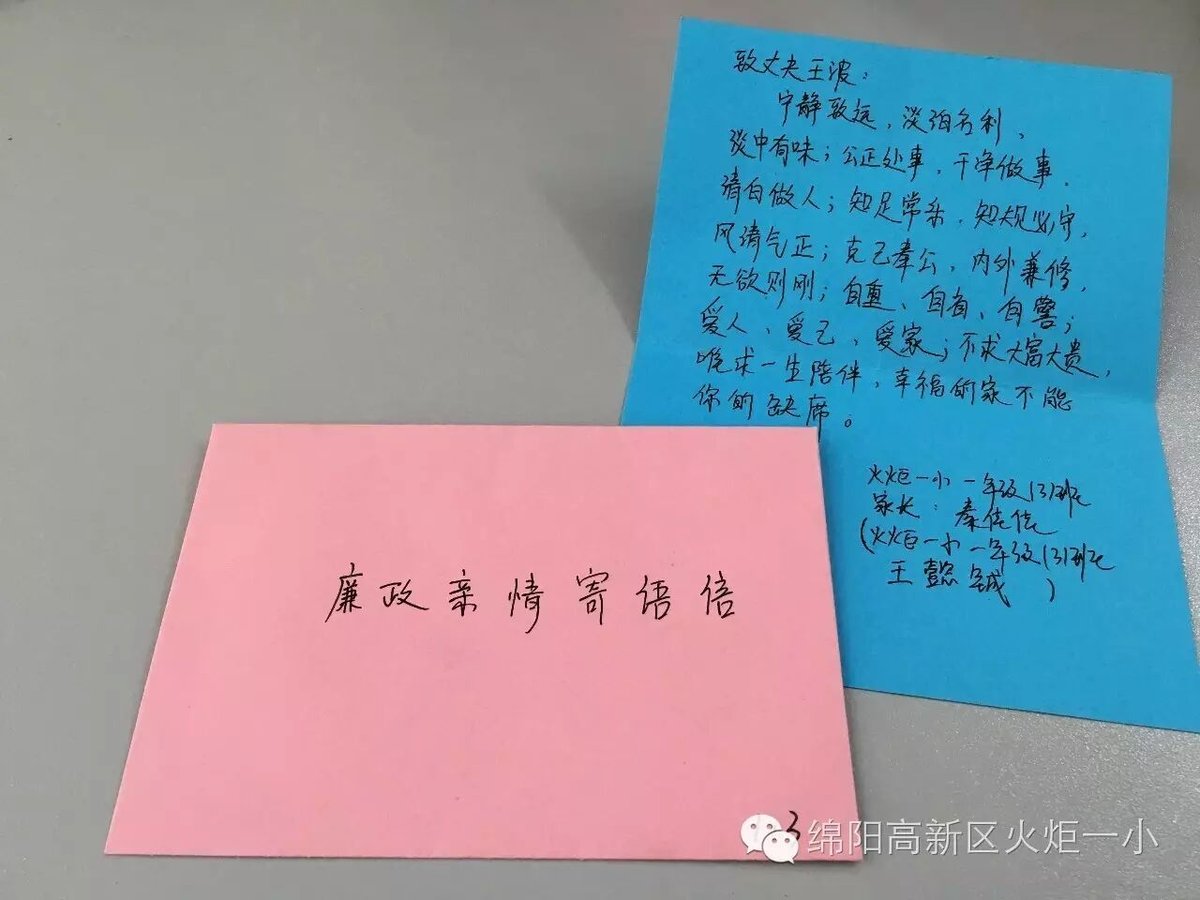 致丈夫王波：
宁静致远，淡泊名利，
淡中有味；公正处事，干净做事，
清白做人；知足常乐，知规必守，
风清气正；克己奉公，内外兼修，
无欲则刚；自重、自省、自警；
爱人、爱己、爱家；不求大富大贵，
唯求一生陪伴，幸福的家不能
你的缺席。
火炬一小一年级(3)班
家长：秦佳佳
(火炬一小一年级(3)班
王懿铖)
廉政亲情寄语信
3
绵阳高新区火炬一小